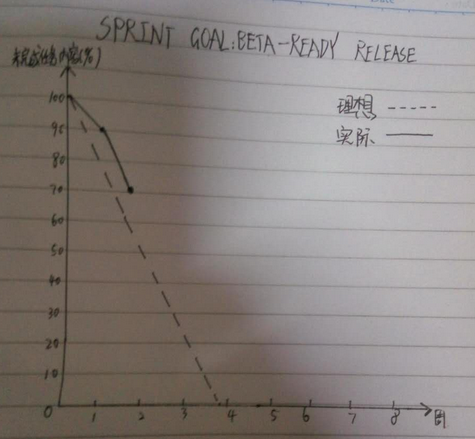 SPRINT GOAL:BETA-READY RELEASE
未完成任务
(%)
理想
实际
100
90
80
70
60
50
40
30
20
10
0 1 2 3 4 5 6 7 8 周